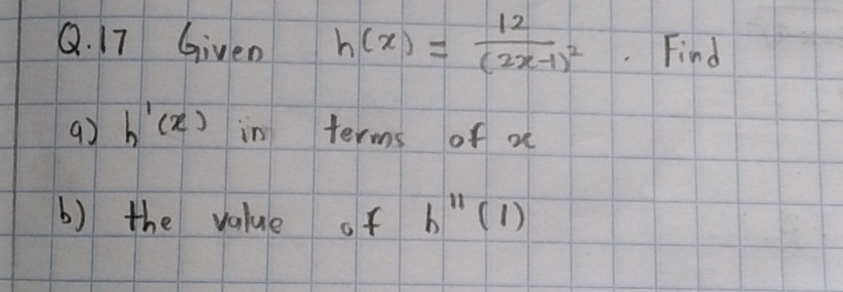 Q.17 Given h(x) = 12/(2x-1)² . Find
a) h'(x) in terms of x
b) the value of h"(1)